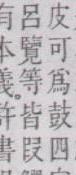 皮可爲鼓四
呂覽等皆叚
有本義。許書